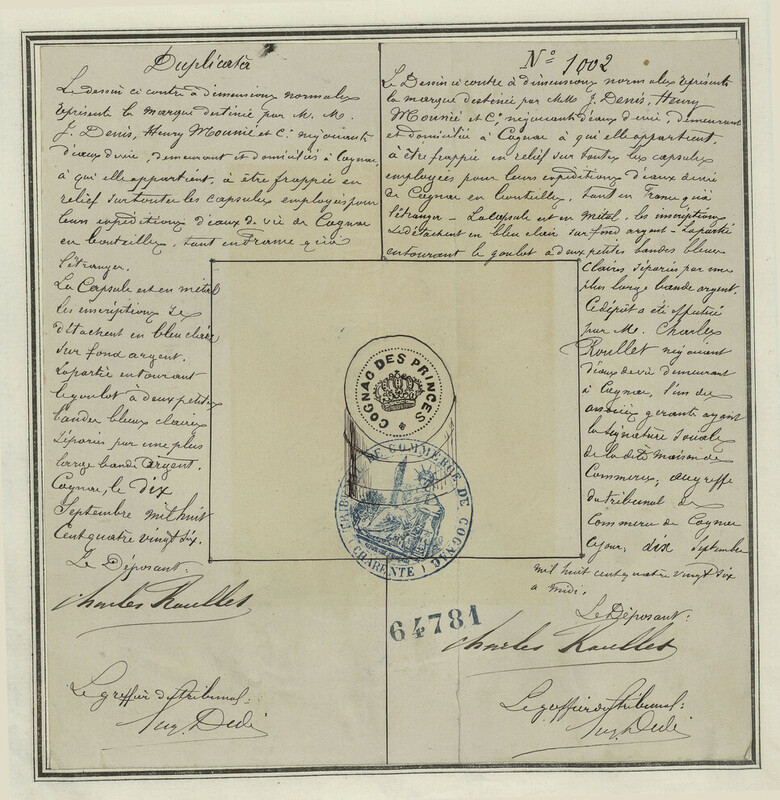 Duplicata
Le dessin ci contre à dimensions normales
représente la marque destinée par M. M.
J. Denis, Henry Mounié et Cie négociants
d'eaux de vie, demeurant et domiciliés à Cognac,
à qui elle appartient, à être frappée en
relief sur toutes les capsules employés pour
leurs expéditions d'eaux de vie de Cognac
en bouteilles, tant en France qu'à
l'étranger.
La Capsule est en métal
les inscriptions se
détachent en bleu claire
sur fond argent.
La partie entourant
le goulot à deux petites
bandes bleues claires
séparés par une plus
large bande argent.
Cognac, le dix
Septembre mil huit
Cent quatre vingt six.
Le Déposant:
Charles Roullet
Le greffier du tribunal:
Nº 1002
Le Dessin ci contre à dimensions normales représente
la marque destinée par MM. J. Denis, Henry
Mounié et Cie négociants d'eaux de vie, demeurant
et domiciliés à Cognac à qui elle appartient,
à être frappée en relief sur toutes les capsules
employées pour leurs expéditions d'eaux de vie
de Cognac en bouteilles, tant en France qu'à
l'étranger - La Capsule est en métal. les inscriptions
se détachent en bleu clair sur fond argent - La partie
entourant le goulot à deux petites bandes bleues
claires séparés par une
plus large bande argent.
Ce dépôt a été effectué
par M. Charles
Roullet négociant
d'eaux de vie demeurant
à Cognac, l'un des
associés gérants ayant
la signature sociale
de la dite maison de
Commerce, au greffe
du tribunal de
Commerce de Cognac
ce jour, dix Septembre
mil huit cent quatre vingt six
a midi.
Le Déposant:
Charles Roullet
Le greffier du tribunal:
COGNAC DES PRINCES
TRIBUNAL DE COMMERCE DE COGNAC
(CHARENTE)
64781